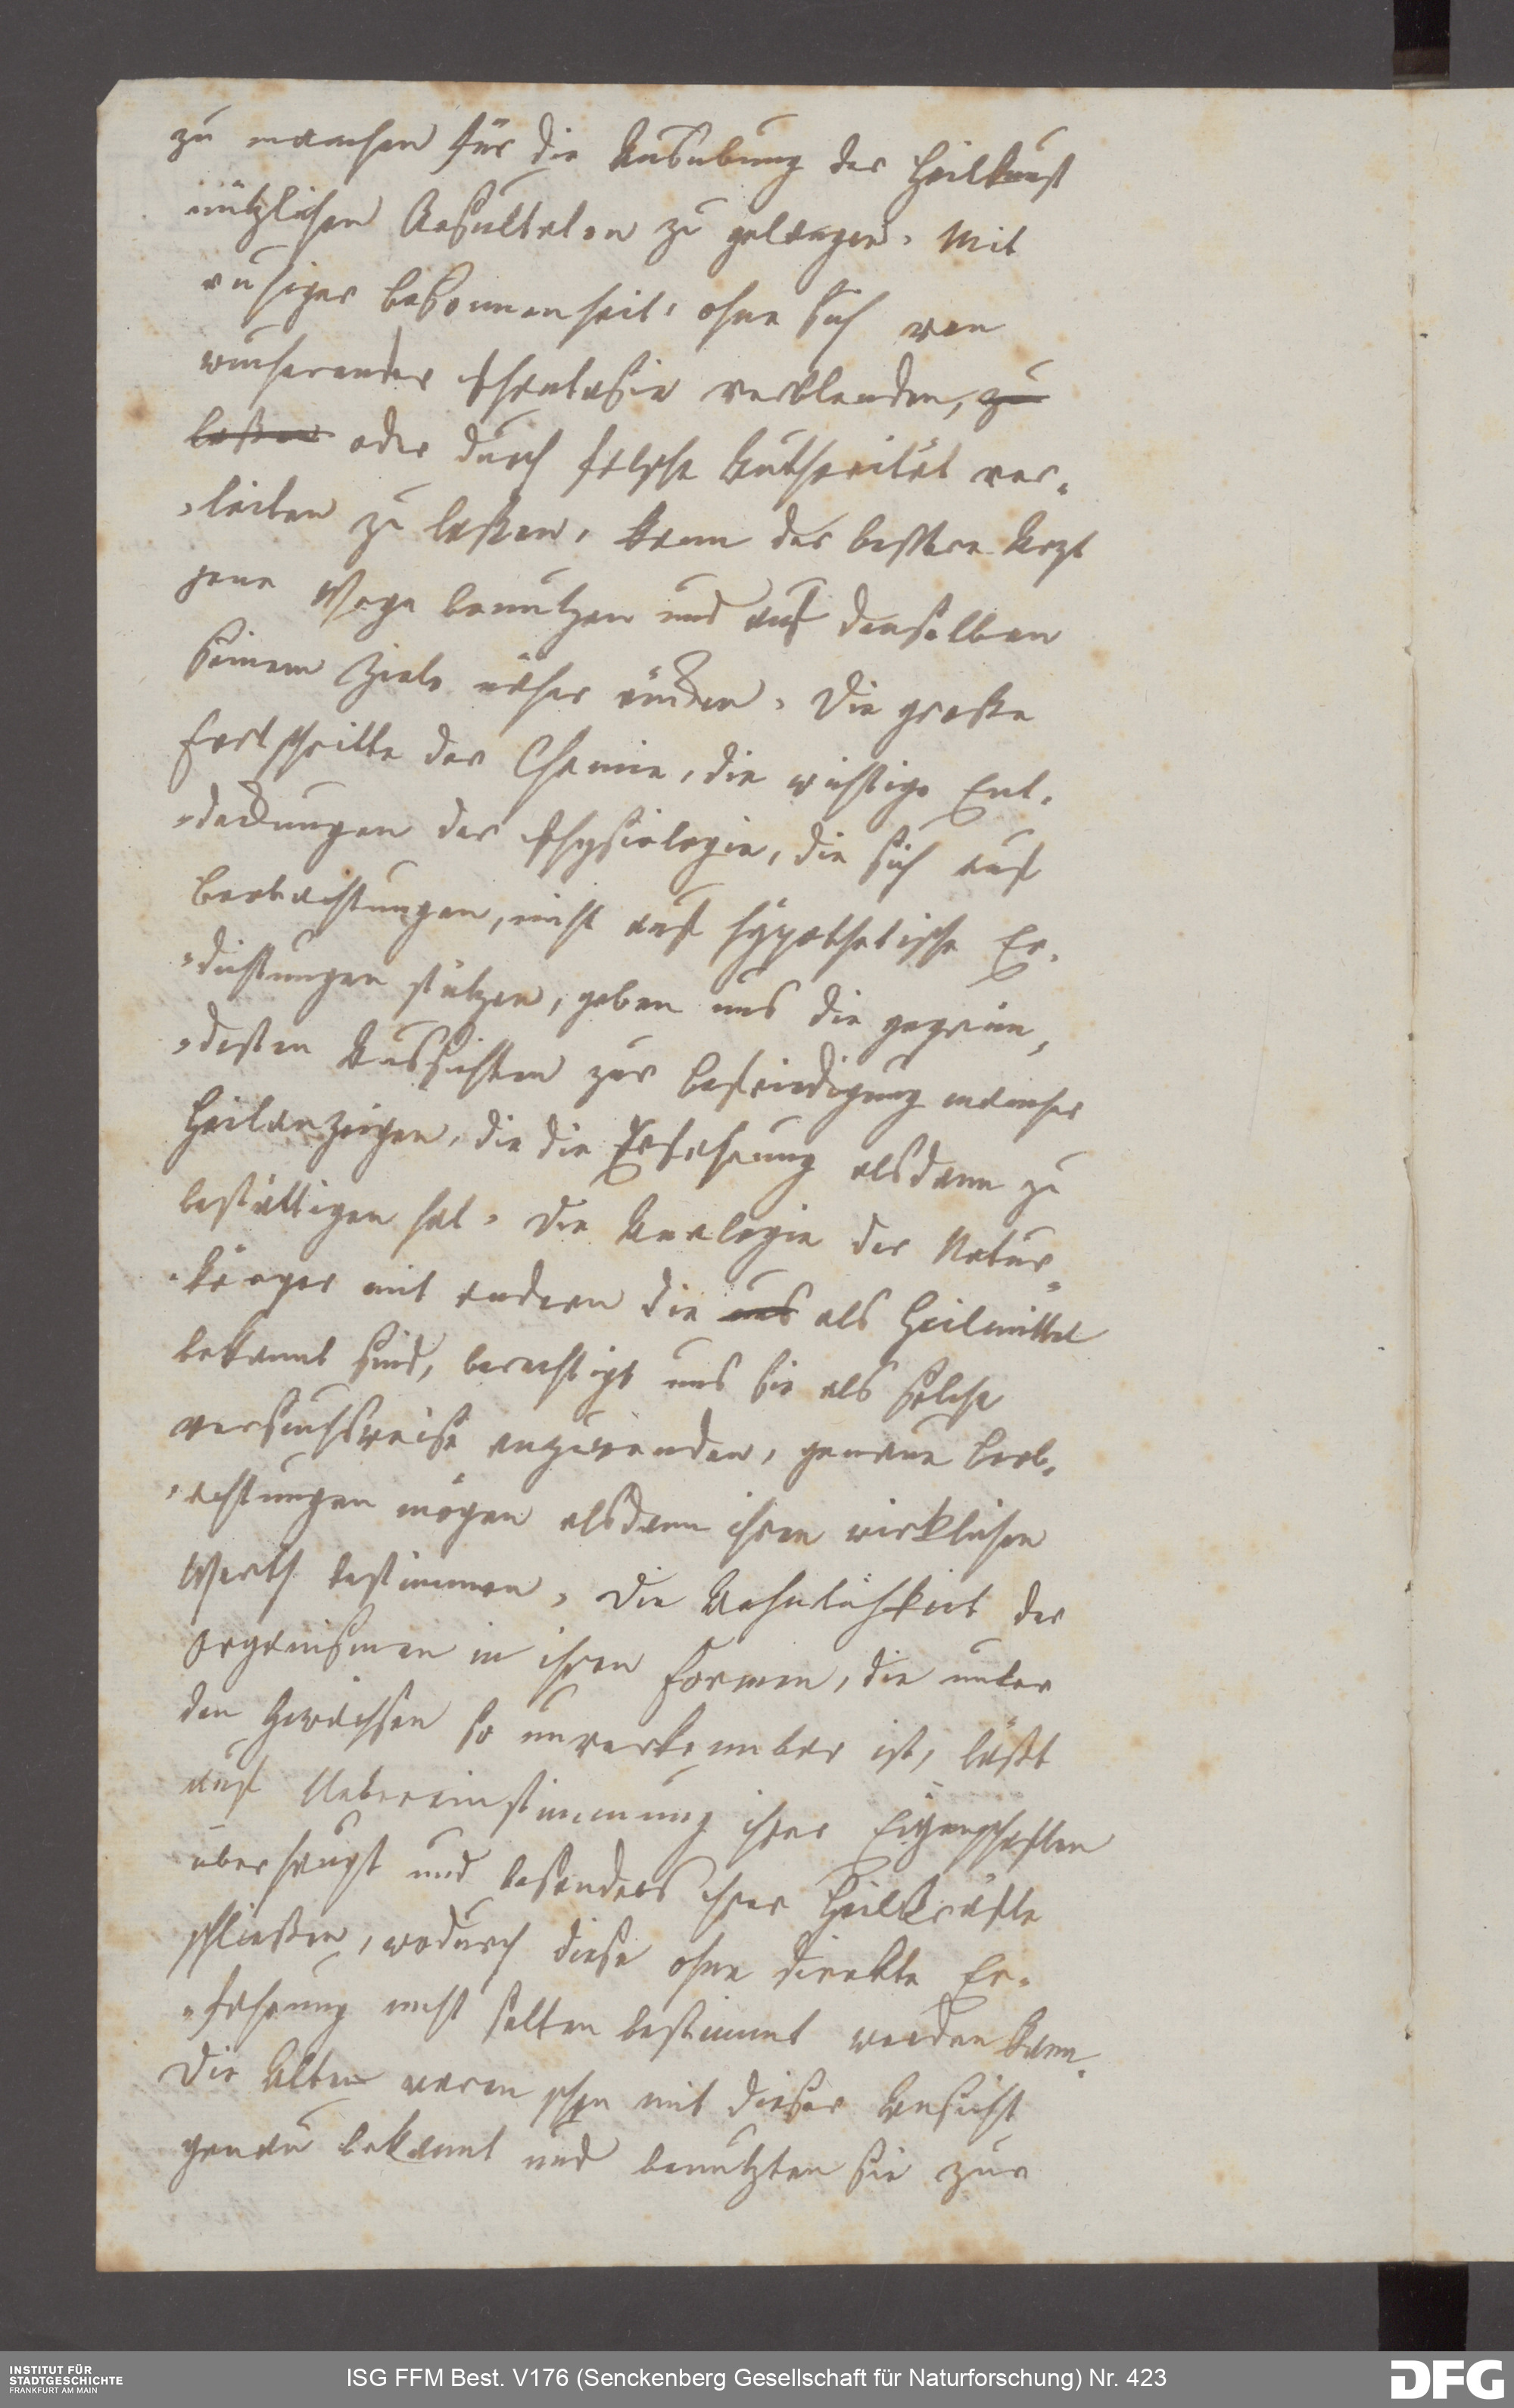 zu manchen für die Ausübung der Heilkunst
nützlichen Resultaten zu gelangen. Mit
ruhiger Besonnenheit, ohne sich von
wuchernder Phantasie verblenden, zu
laßen oder durch falsche Authorität ver-
-leiten zu laßen, kann der bessere Arzt
jene Wege benutzen und auf denselben
seinem Ziele näher rücken. Die große
Fortschritte der Chemie, die wichtige Ent-
-deckungen der Physiologie, die sich auf
Beobachtungen, nicht auf hÿpothetische Er-
-dichtungen stützen, geben uns die gegrün-
-desten Aussichten zur Befriedigung mancher
Heilanzeigen, die die Erfahrung alsdann zu
bestättigen hat. Die Analogie der Natur-
-körper mit andern die uns als Heilmittel
bekannt sind, berechtigt uns sie als solche
versuchsweise anzuwenden, genaue Beob-
-achtungen mögen alsdann ihren wirklichen
Werth bestimmen. Die Aehnlichkeit der
Organismen in ihren Formen, die unter
den Gewächsen so unverkennbar ist, läßt
auf Uebereinstimmung ihrer Eigenschaften
überhaupt und besonders ihrer Heilkräfte
schließen, wodurch diese ohne direkte Er-
-fahrung nicht selten bestimmt werden kann.
Die Alten waren schon mit dieser Ansicht
genau bekannt und benutzten sie zur
INSTITUT FÜR
STADTGESCHICHTE
FRANKFURT AM MAIN
ISG FFM Best. V176 (Senckenberg Gesellschaft für Naturforschung) Nr. 423
DFG